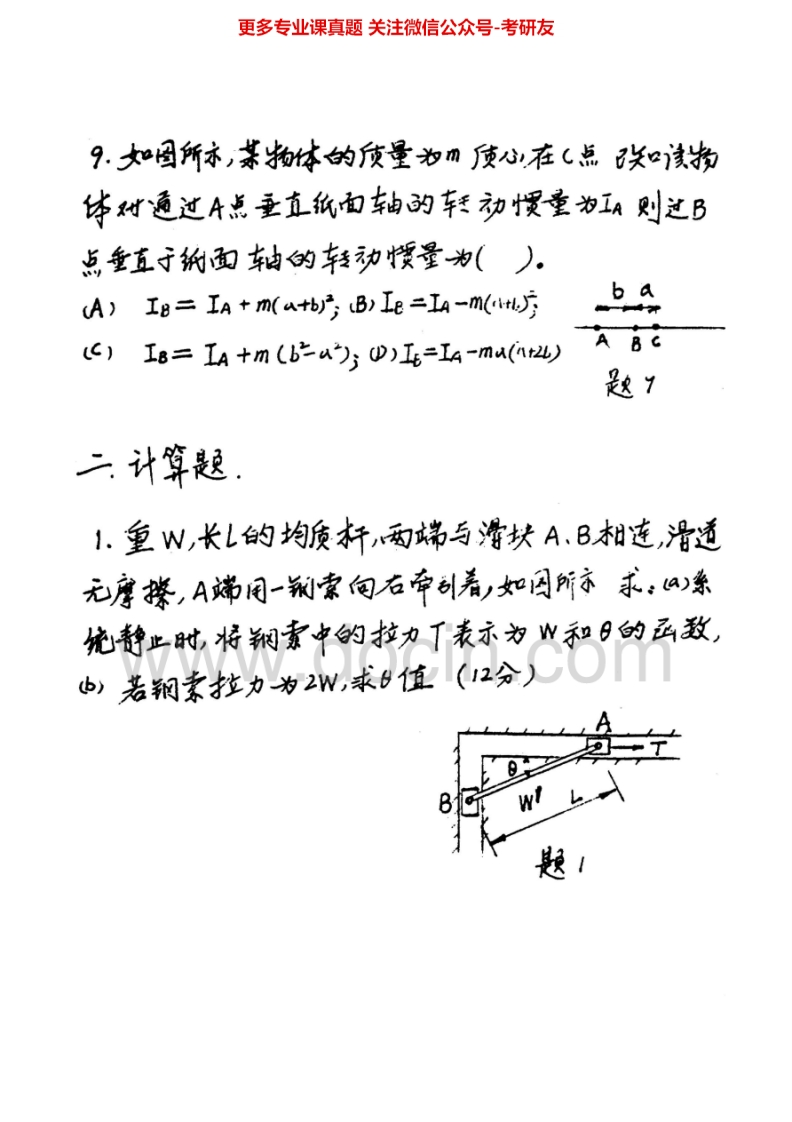 更多专业课真题 关注微信公众号-考研友
9. 如图所示,某物体的质量为m 质心在C点 已知该物
体对通过A点垂直纸面轴的转动惯量为IA 则过B
点垂直于纸面轴的转动惯量为( )。
(A) IB = IA + m(a+b)²; (B) IB = IA - m(a+b)²;
b a
(C) IB = IA + m(b²-a²); (D) IB = IA - ma(a+2b)
A B C
题
二. 计算题.
1. 重W,长L的均质杆,两端与滑块A、B相连,滑道
无摩擦,A端用一钢索向右牵引着,如图所示 求:(a)系
统静止时,将钢索中的拉力T表示为W和θ的函数,
(b) 若钢索拉力为2W,求θ值 (12分)
www.docin.com
A
T
θ
B
W
L
题1